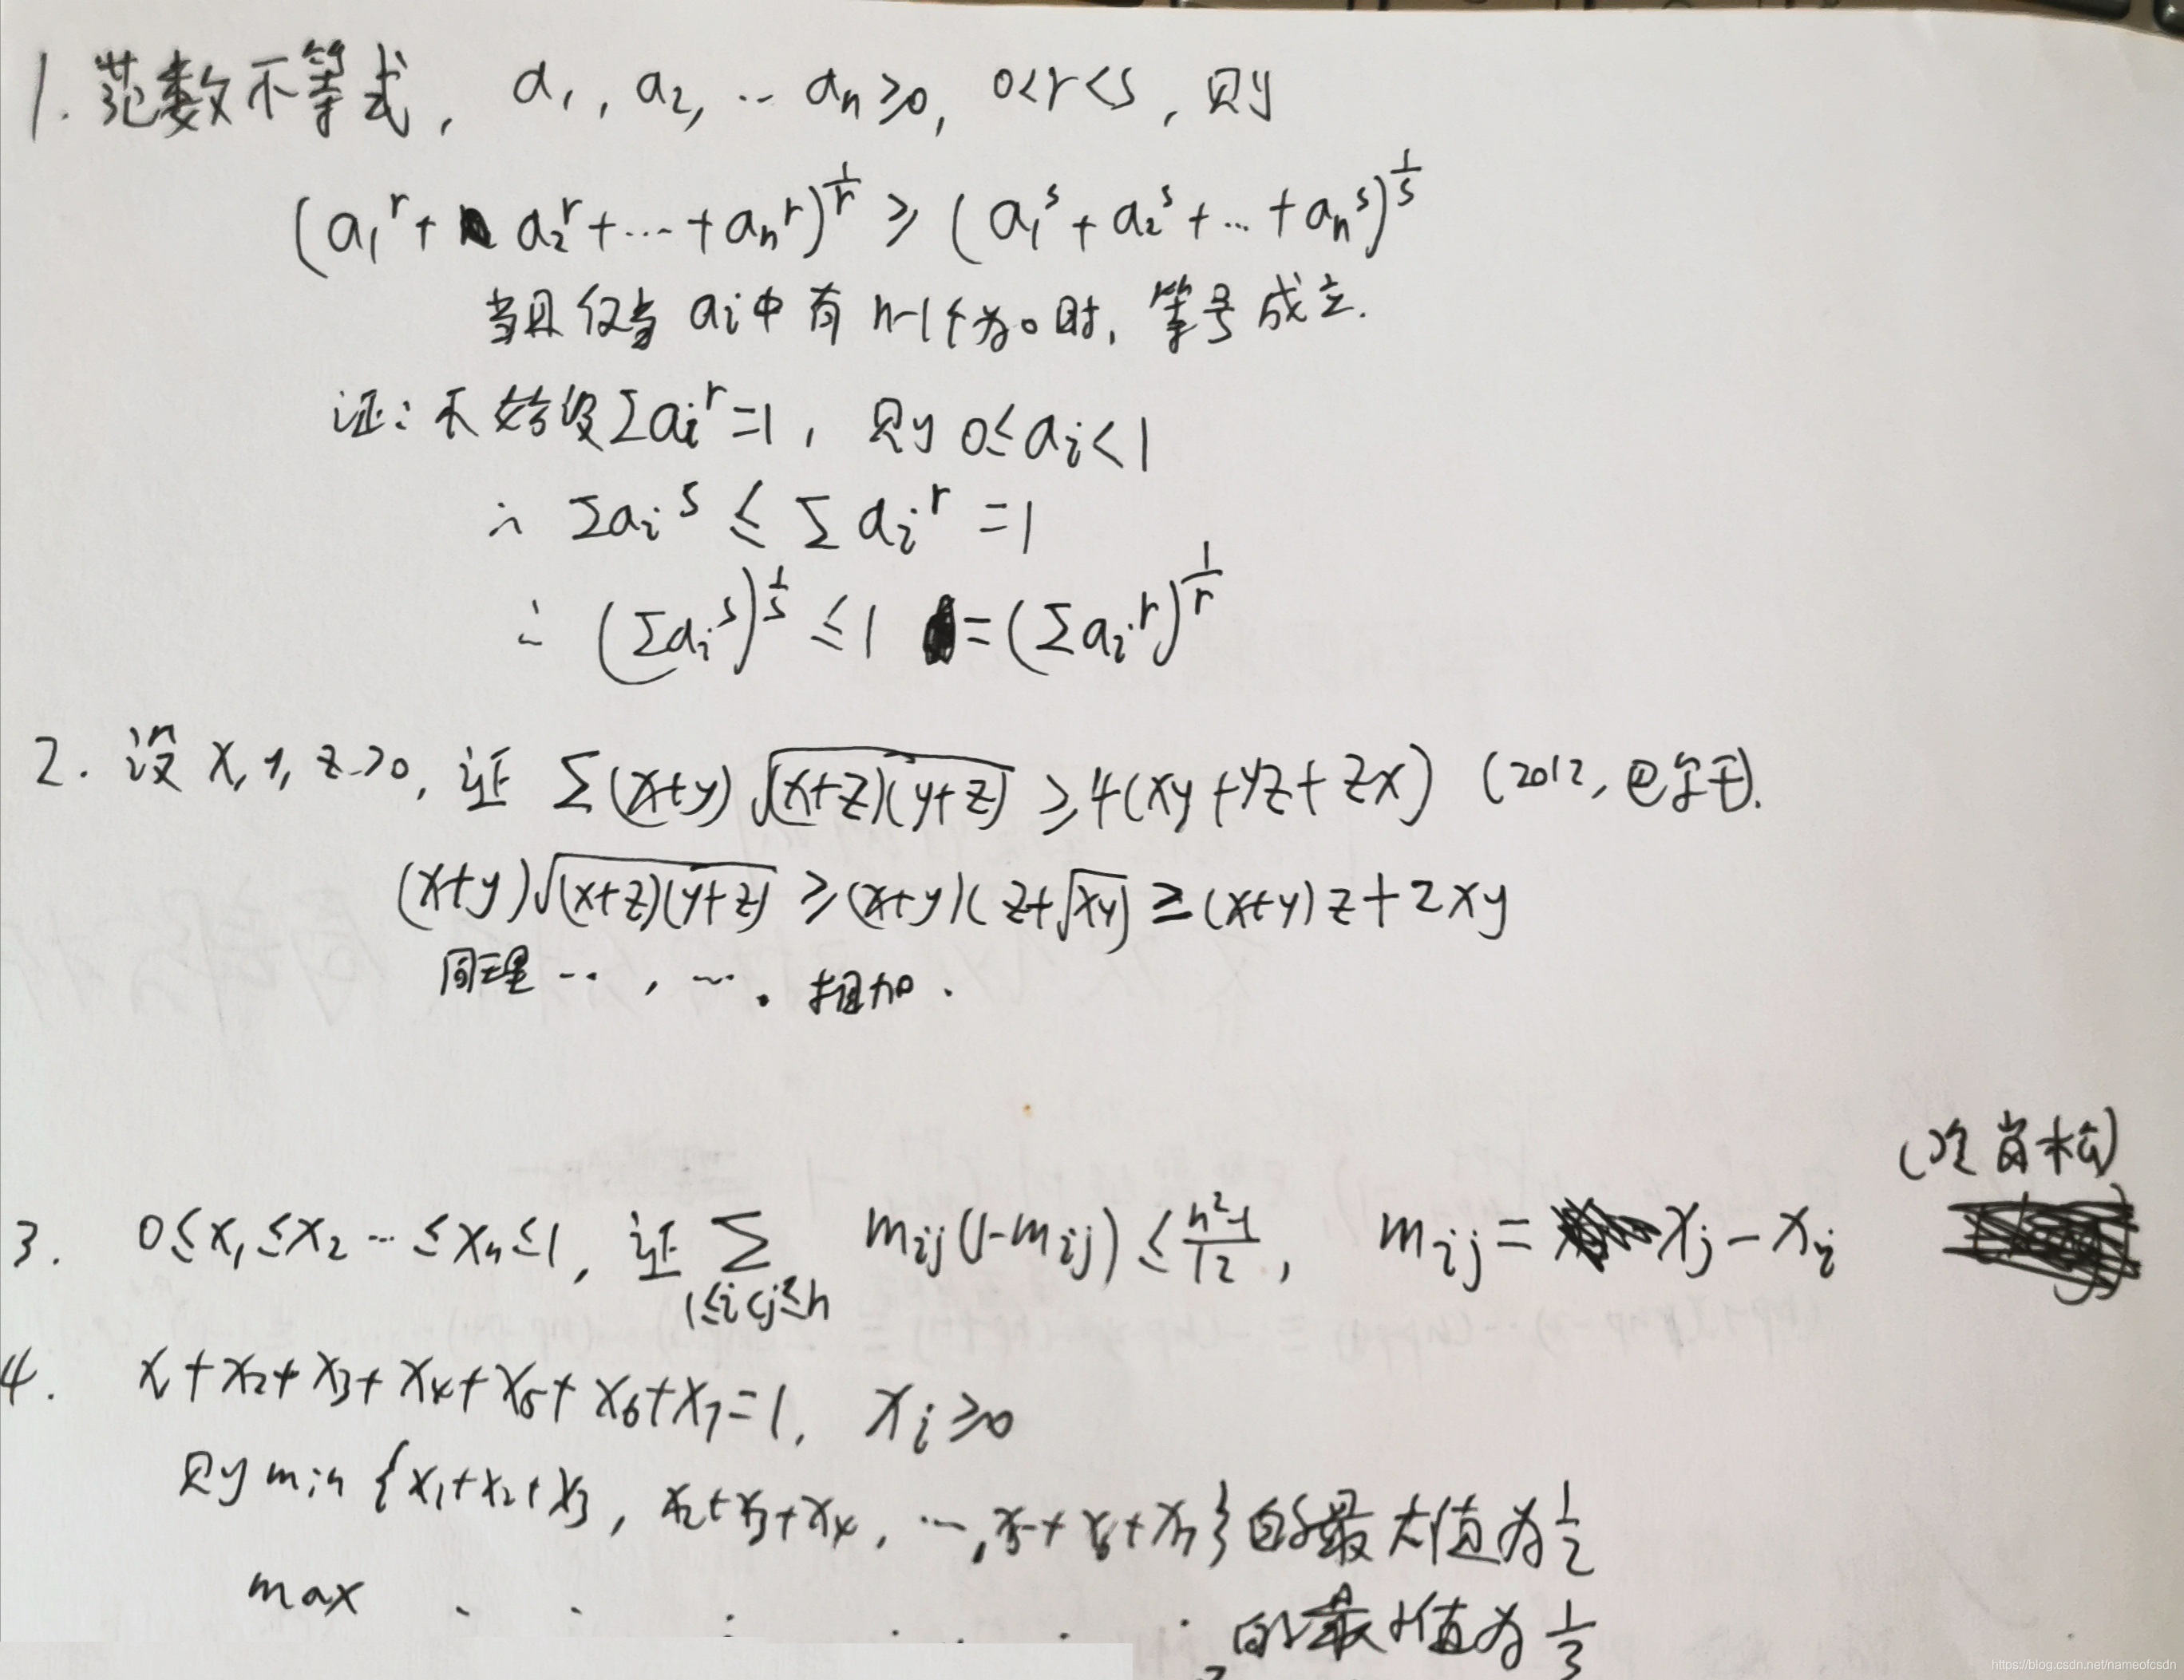 1. 范数不等式, a₁, a₂, … aₙ≥0, 0<r<s, 则
(a₁ʳ + a₂ʳ + … + aₙʳ)^(1/r) ≥ (a₁ˢ + a₂ˢ + … + aₙˢ)^(1/s)
当且仅当 aᵢ中有 n-1个为0时, 等号成立.
证: 不妨设Σaᵢʳ=1, 则 0≤aᵢ<1
∴ Σaᵢˢ ≤ Σaᵢʳ = 1
∴ (Σaᵢˢ)^(1/s) ≤ 1 = (Σaᵢʳ)^(1/r)
2. 设 x, y, z>0, 证 Σ(x+y)√((x+z)(y+z)) ≥ 4(xy+yz+zx) (2012, 巴尔干).
(x+y)√((x+z)(y+z)) ≥ (x+y)(z+√(xy)) ≥ (x+y)z+2xy
同理 … , … . 相加 .
3. 0≤x₁≤x₂ … ≤xₙ≤1, 证 Σ_(1≤i<j≤n) mᵢⱼ(1-mᵢⱼ) ≤ (n²-1)/12, mᵢⱼ = xⱼ-xᵢ
4. x+x₂+x₃+x₄+x₅+x₆+x₇=1, xᵢ≥0
则 min {x₁+x₂+x₃, x₂+x₃+x₄, …, x₅+x₆+x₇} 的最大值为 1/2
max . . . . . . . 的最小值为 1/3
https://blog.csdn.net/nameofcsdn